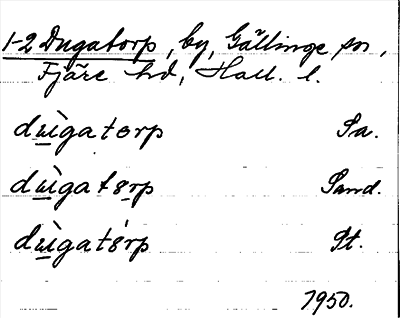 1-2 Dugatorp, by, Gällinge sn,
Fjäre hd, Hall. l.
dùgatorp Sa.
dùgatɵrp Sand.
dùgatɵ́rp St.
1950.